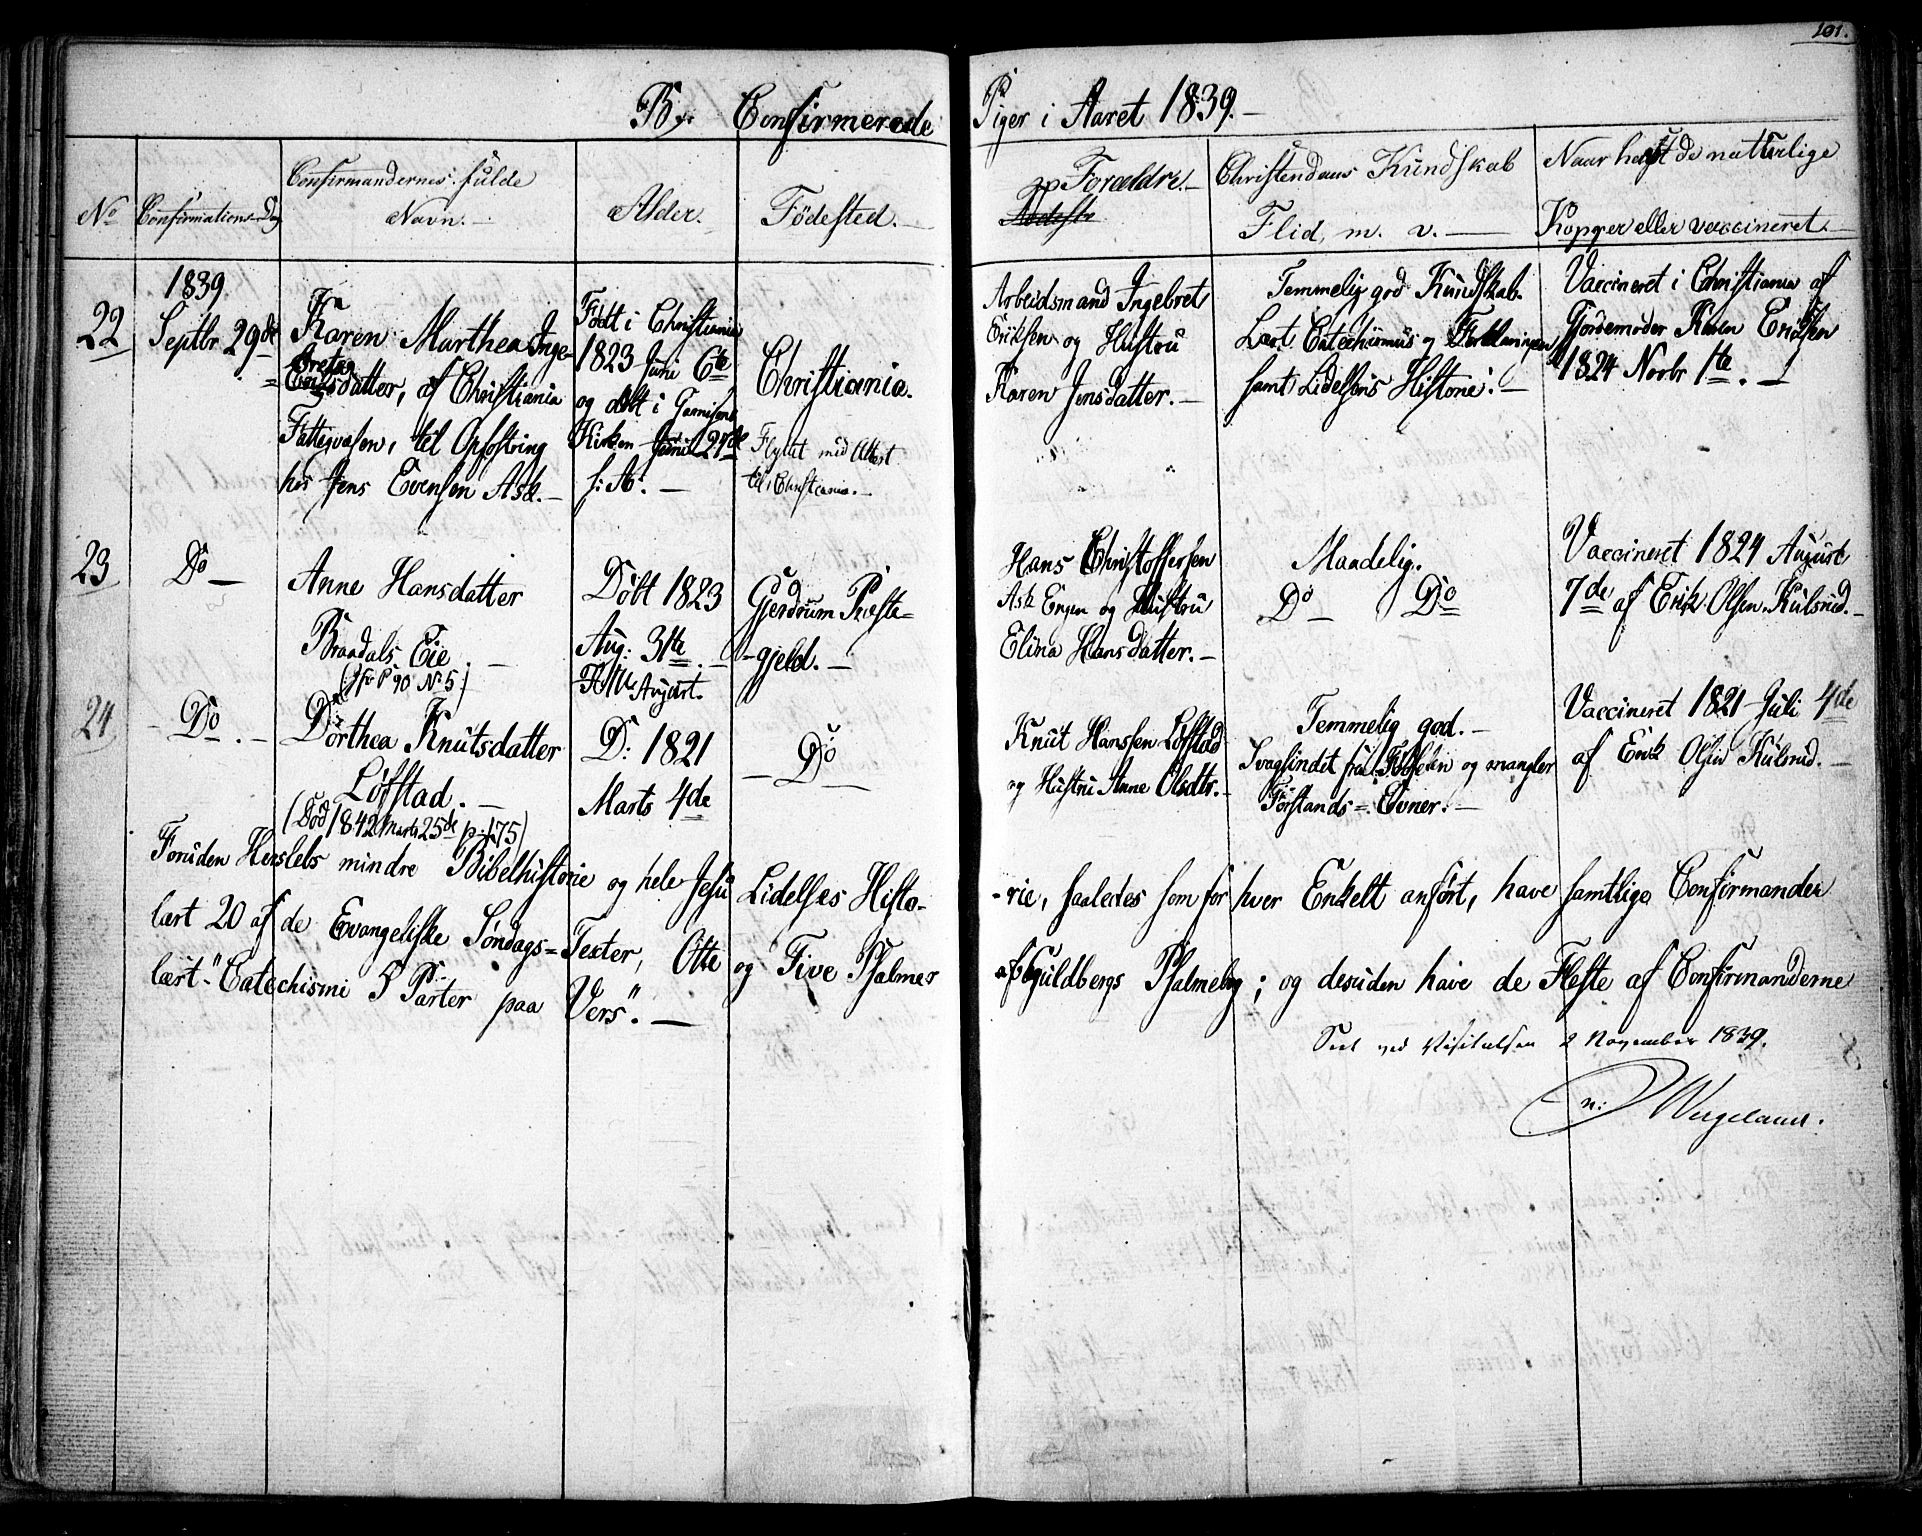 101.
B. Confirmerede Piger i Aaret 1839.
No
Confirmations-Dag
Confirmandernes fulde
Navn.
Alder.
Fødested.
Forældre.
Christendoms Kundskab
Flid, m. v.
Naar havt de naturlige
Kopper eller vaccineret.
22
1839
Septbr 29de
Karen Marthea Inge-
bretsdatter, af Christiania
Fattigvæsen, til Opfostring
hos Jens Evensen Ask.
Født i Christiania
1823 Juni 6te
og døbt i Garnisons
Kirken Juni 27de
s: A:
Christiania.
Flyttet med Attest
til Christiania.
Arbeidsmand Ingebret
Eriksen og Hustru
Karen Jensdatter.
Temmelig god Kundskab.
Læst Catechismus og Forklaringen
samt Lidelsens Historie.
Vaccineret i Christiania af
Gjordemoder Karen Eriksen
1824 Novbr 1te.
23
Do
Anne Hansdatter
Brådals Eie.
(jfr P 90 No 5)
Døbt 1823
Aug: 31te.
August.
Gjerdrum Præste-
-gjeld.
Hans Christoffersen
Ask Engen og Hustru
Elina Hansdatter.
Maadelig.
Do Do
Vaccineret 1824 August
7de af Erik Olsen Kulsrud.
24
Do
Dorthea Knutsdatter
Løfstad.
(Død 1842 Marts 25de p. 175)
D: 1821
Marts 4de
Do
Knut Hansen Løfstad
og Hustru Anne Olsdtr.
Temmelig god.
Svagsindet fra Fødselen og mangler
Forstands-Evner.
Vaccineret 1821 Juli 4de
af Erik Olsen Kulsrud.
Foruden Herslebs mindre Bibelhistorie og hele Jesu Lidelses Histo-
-rie, saaledes som for hver Enkelt anført, have samtlige Confirmander
lært 20 af de Evangeliske Søndags-Texter, Otte og Five Psalmer
af Guldbergs Psalmebog; og desuden have de Fleste af Confirmanderne
lært "Catechismi 5 Parter paa Vers".
Seet ved Visitatsen 2 November 1839.
N: Wergeland.